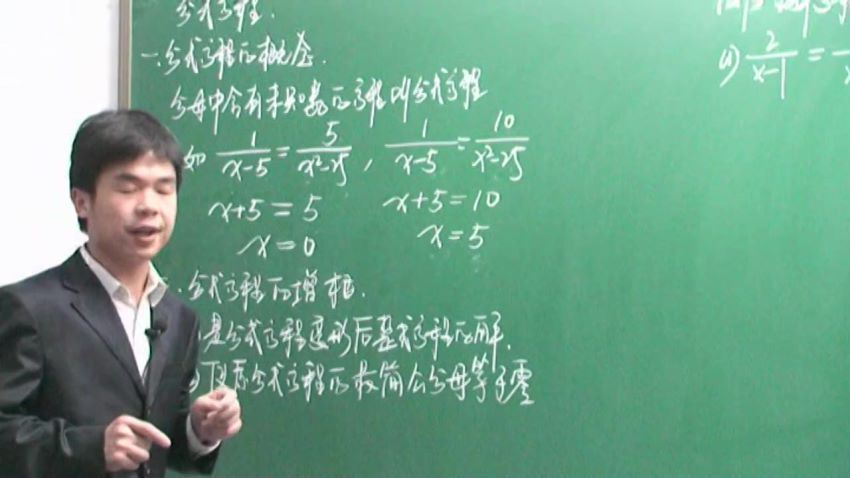 分式方程.
一.分式方程的概念.
分母中含有未知数的方程叫分式方程
如 1/(x-5) = 5/(x²-25) , 1/(x-5) = 10/(x²-25)
x+5=5 x+5=10
x=0 x=5
.分式方程的增根.
是分式方程变形后整式方程的解.
使原分式方程的最简公分母等于零
(1) 2/(x-1) =